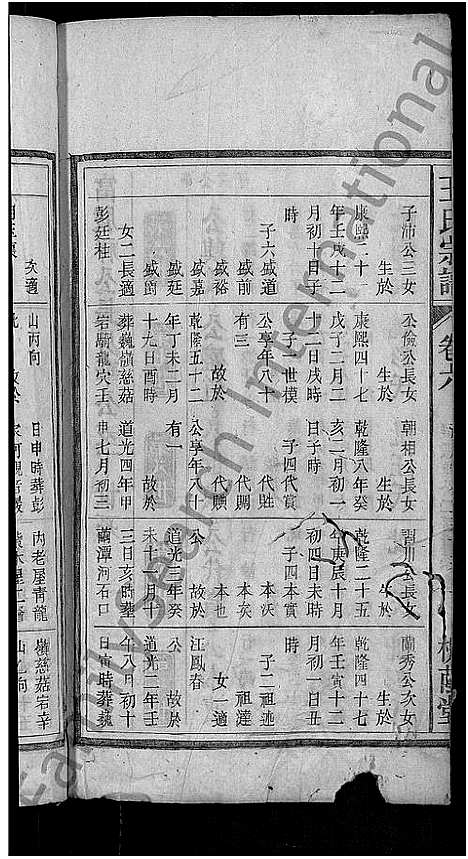 王氏宗譜
卷六
子沛公三女
生於
康熙二十一
年壬戌十二
月初十日子
時
子六盛道
盛前
盛裕
盛嘉
盛廷
盛爵
女二長適
彭廷柱
公儉公長女
生於
康熙四十七
戊子二月二
十二日戌時
子一世模
公享年八十
有三
故於
乾隆五十二
年丁未二月
十九日酉時
葬魏嶺慈菇
岩廟龍穴壬
朝相公長女
生於
乾隆八年癸
亥二月初一
日子時
子四代賓
代胜
代賜
代贖
公享年八十
有一
故於
道光四年甲
申七月初三
公長女
生於
乾隆二十五
年庚辰十月
初四日未時
子四本寅
本沃
本矣
本也
故於
公
道光三年癸
未十二月十
三日亥時葬
蘭潭河石口
蘭秀公次女
生於
乾隆四十七
年壬寅十二
月初一日丑
時
子二祖遜
祖達
女一適
江鳳春
公
故於
道光二年壬
午八月初十
日寅時葬魏
次適
山丙向
日申時葬彭
内老屋青龍
嶺慈菇岩辛
FamilySearch International